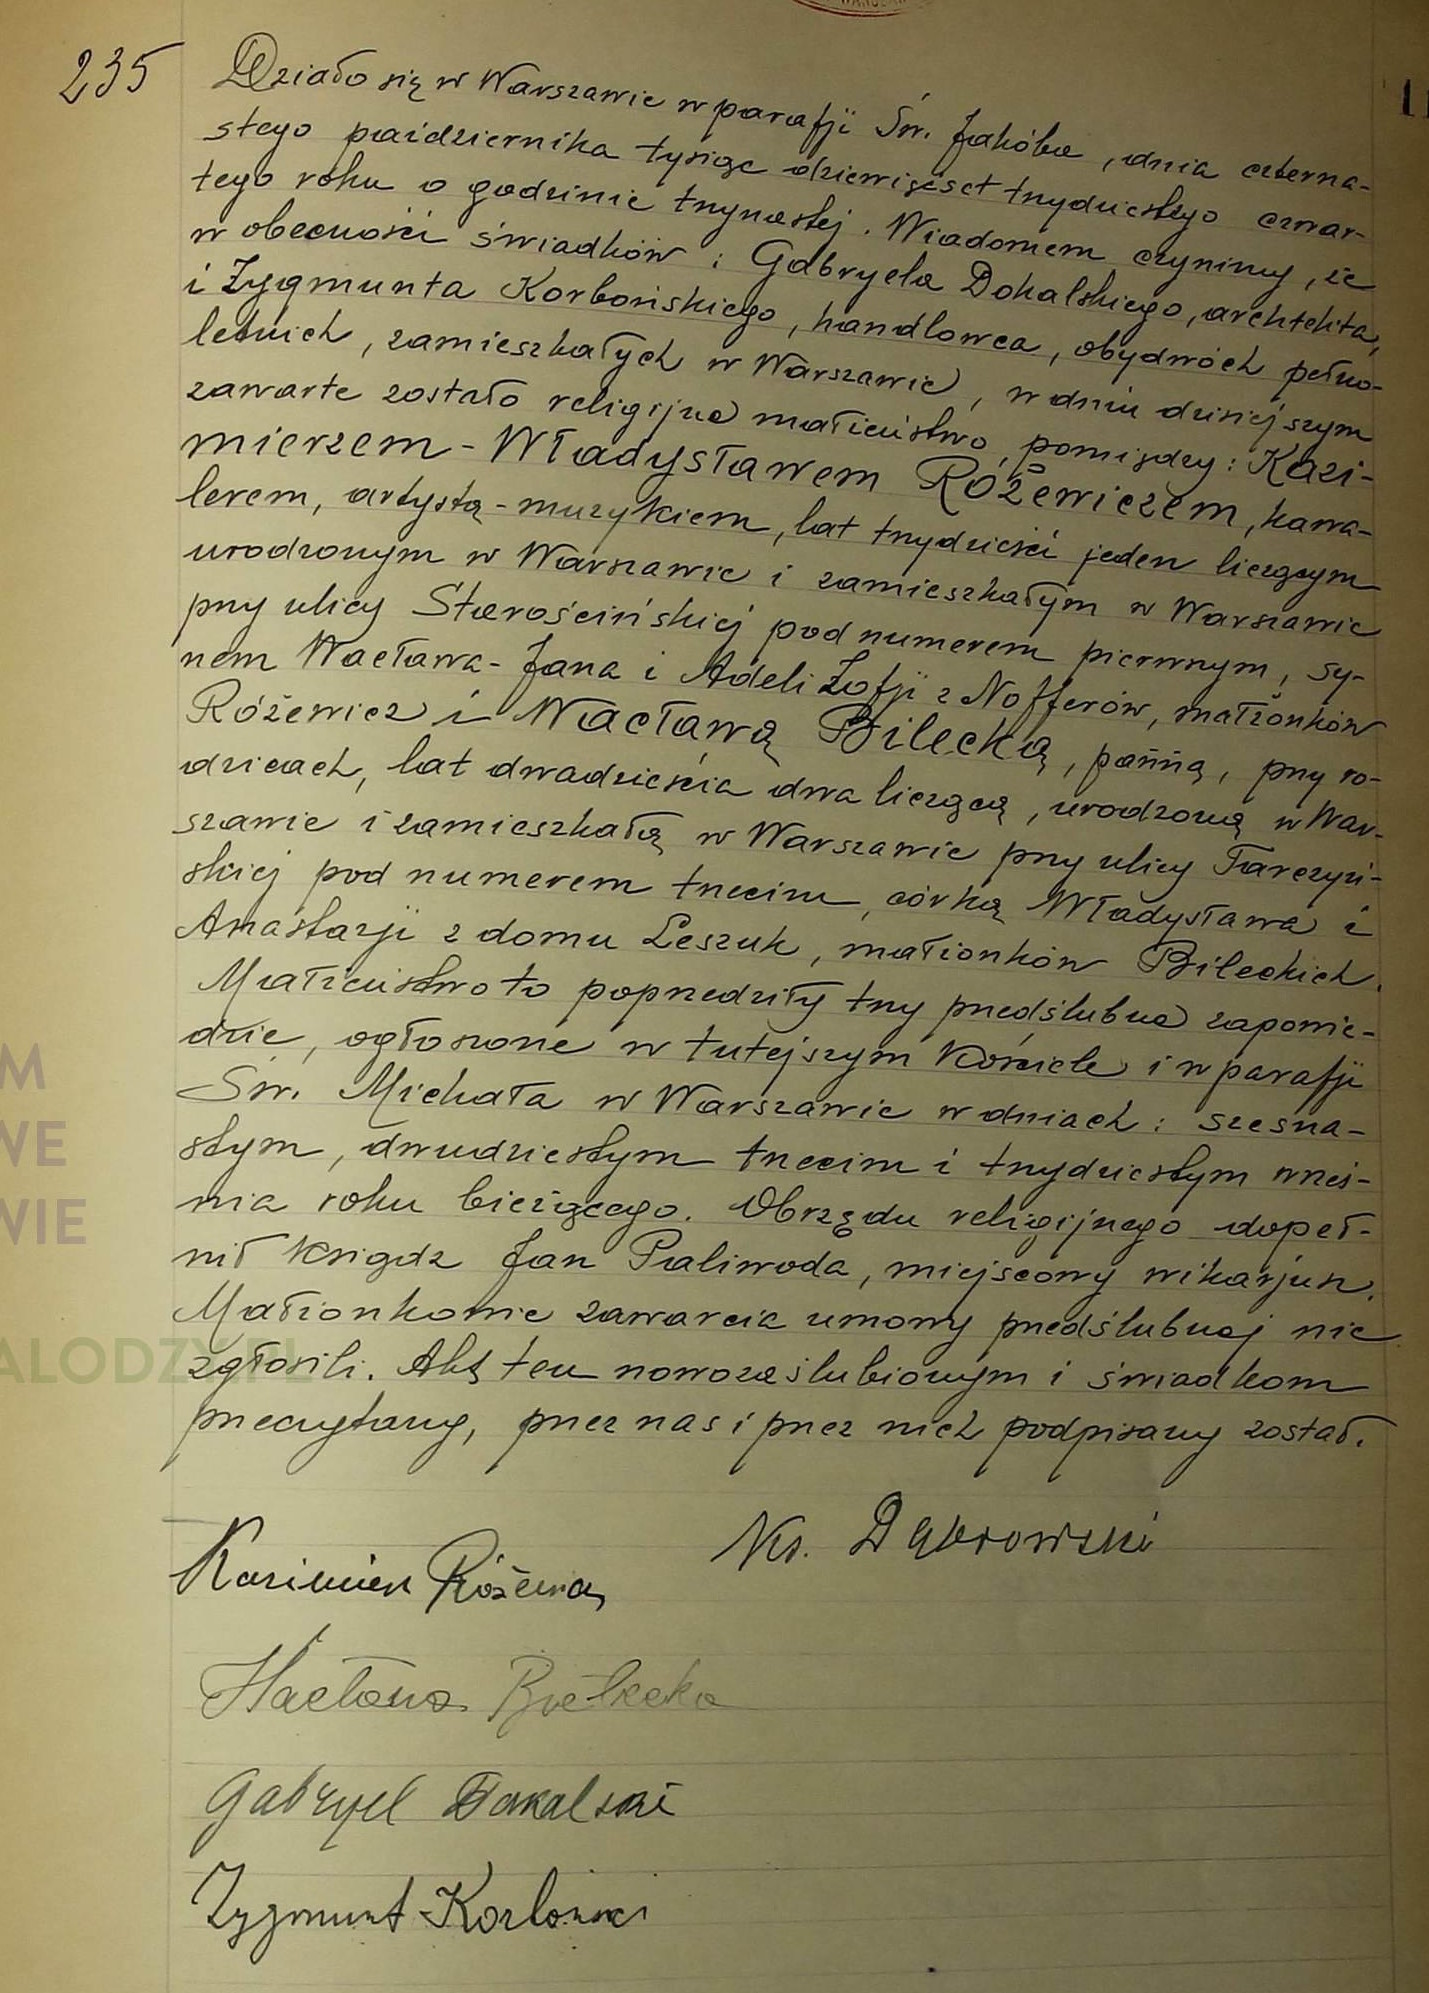 235
Działo się w Warszawie w parafji Św. Jakóba, dnia czterna-
stego października tysiąc dziewięćset trzydziestego czwar-
tego roku o godzinie trzynastej. Wiadomem czynimy, że
w obecności świadków: Gabryela Dokalskiego, archtekta,
i Zygmunta Korbońskiego, handlowca, obydwóch pełno-
letnich, zamieszkałych w Warszawie, w dniu dzisiejszym
zawarte zostało religijne małżeństwo pomiędzy: Kazi-
mierzem-Władysławem Różewiczem, kawa-
lerem, artystą-muzykiem, lat trzydzieści jeden liczącym
urodzonym w Warszawie i zamieszkałym w Warszawie
przy ulicy Starościńskiej pod numerem pierwszym, sy-
nem Wacława-Jana i Adeli Zofji z Nofferów, małżonków
Różewicz i Wacławą Bilecką, panną, przy ro-
dzicach, lat dwadzieścia dwa liczącą, urodzoną w War-
szawie i zamieszkałą w Warszawie przy ulicy Tarczyń-
skiej pod numerem trzecim, córką Władysława i
Anastazji z domu Leszuk, małżonków Bileckich.
Małżeństwo to poprzedziły trzy przedślubne zapowie-
dzie, ogłoszone w tutejszym Kościele i w parafji
Św. Michała w Warszawie w dniach: szesna-
stym, dwudziestym trzecim i trzydziestym wrześ-
nia roku bieżącego. Obrzędu religijnego dopeł-
nił Ksiądz Jan Paliwoda, miejscowy wikarjusz.
Małżonkowie zawarcia umowy przedślubnej nie
zgłosili. Akt ten nowozaślubionym i świadkom
przeczytany, przez nas i przez nich podpisany został.
Ks. Dąbrowski
Kazimierz Różewicz
Wacława Bielecka
Gabryel Dokalski
Zygmunt Korboński
M
WE
WIE
ALODZY.PL